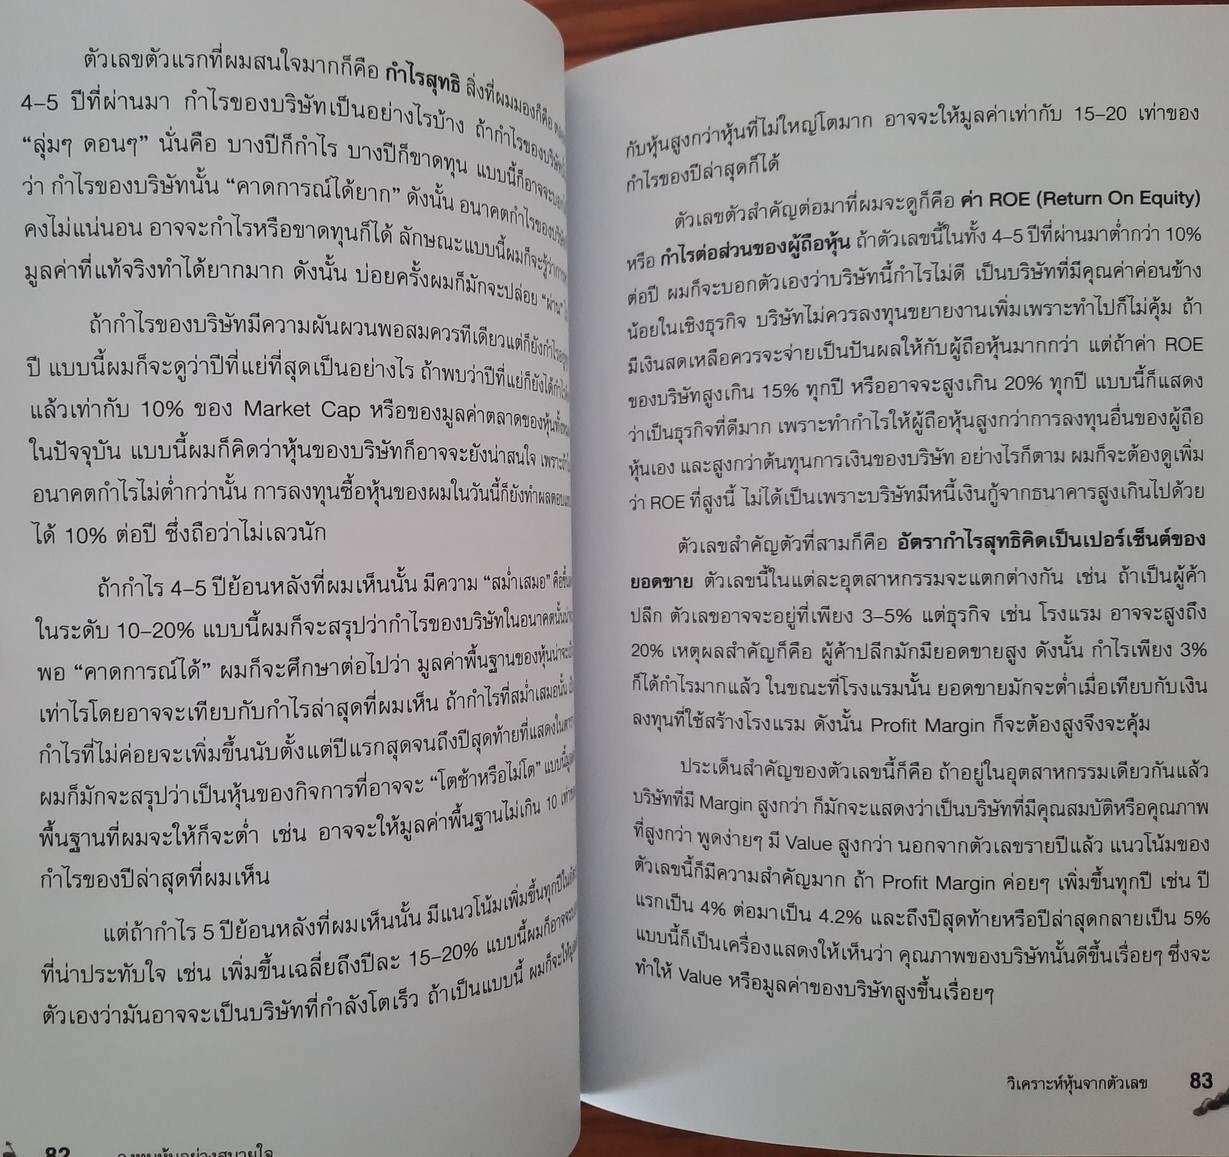 ตัวเลขตัวแรกที่ผมสนใจมากก็คือ กำไรสุทธิ สิ่งที่ผมมองก็คือ
4–5 ปีที่ผ่านมา กำไรของบริษัทเป็นอย่างไรบ้าง ถ้ากำไรของบริษัท
“ลุ่มๆ ดอนๆ” นั่นคือ บางปีก็กำไร บางปีก็ขาดทุน แบบนี้ก็อาจจะบอก
ว่า กำไรของบริษัทนั้น “คาดการณ์ได้ยาก” ดังนั้น อนาคตกำไรของบริษัท
คงไม่แน่นอน อาจจะกำไรหรือขาดทุนก็ได้ ลักษณะแบบนี้ผมก็จะรู้ว่าการ
มูลค่าที่แท้จริงทำได้ยากมาก ดังนั้น บ่อยครั้งผมก็มักจะปล่อย “ผ่าน”
ถ้ากำไรของบริษัทมีความผันผวนพอสมควรทีเดียวแต่ก็ยังกำไร
ปี แบบนี้ผมก็จะดูว่าปีที่แย่ที่สุดเป็นอย่างไร ถ้าพบว่าปีที่แย่ก็ยังได้กำไร
แล้วเท่ากับ 10% ของ Market Cap หรือของมูลค่าตลาดของหุ้น
ในปัจจุบัน แบบนี้ผมก็คิดว่าหุ้นของบริษัทก็อาจจะยังน่าสนใจ เพราะ
อนาคตกำไรไม่ต่ำกว่านั้น การลงทุนซื้อหุ้นของผมในวันนี้ก็ยังทำผลตอบ
ได้ 10% ต่อปี ซึ่งถือว่าไม่เลวนัก
ถ้ากำไร 4–5 ปีย้อนหลังที่ผมเห็นนั้น มีความ “สม่ำเสมอ”
ในระดับ 10–20% แบบนี้ผมก็จะสรุปว่ากำไรของบริษัทในอนาคตนั้น
พอ “คาดการณ์ได้” ผมก็จะศึกษาต่อไปว่า มูลค่าพื้นฐานของหุ้นน่าจะ
เท่าไรโดยอาจจะเทียบกับกำไรล่าสุดที่ผมเห็น ถ้ากำไรที่สม่ำเสมอนั้น
กำไรที่ไม่ค่อยจะเพิ่มขึ้นนับตั้งแต่ปีแรกสุดจนถึงปีสุดท้ายที่แสดงใน
ผมก็มักจะสรุปว่าเป็นหุ้นของกิจการที่อาจจะ “โตช้าหรือไม่โต” แบบนี้
พื้นฐานที่ผมจะให้ก็จะต่ำ เช่น อาจจะให้มูลค่าพื้นฐานไม่เกิน 10 เท่า
กำไรของปีล่าสุดที่ผมเห็น
แต่ถ้ากำไร 5 ปีย้อนหลังที่ผมเห็นนั้น มีแนวโน้มเพิ่มขึ้นทุกปีใน
ที่น่าประทับใจ เช่น เพิ่มขึ้นเฉลี่ยถึงปีละ 15–20% แบบนี้ผมก็อาจจะ
ตัวเองว่ามันอาจจะเป็นบริษัทที่กำลังโตเร็ว ถ้าเป็นแบบนี้ ผมก็จะให้
82 ลงทุนหุ้นอย่างสบายใจ
กับหุ้นสูงกว่าหุ้นที่ไม่ใหญ่โตมาก อาจจะให้มูลค่าเท่ากับ 15–20 เท่าของ
กำไรของปีล่าสุดก็ได้
ตัวเลขตัวสำคัญต่อมาที่ผมจะดูก็คือ ค่า ROE (Return On Equity)
หรือ กำไรต่อส่วนของผู้ถือหุ้น ถ้าตัวเลขนี้ในทั้ง 4–5 ปีที่ผ่านมาต่ำกว่า 10%
ต่อปี ผมก็จะบอกตัวเองว่าบริษัทนี้กำไรไม่ดี เป็นบริษัทที่มีคุณค่าค่อนข้าง
น้อยในเชิงธุรกิจ บริษัทไม่ควรลงทุนขยายงานเพิ่มเพราะทำไปก็ไม่คุ้ม ถ้า
มีเงินสดเหลือควรจะจ่ายเป็นปันผลให้กับผู้ถือหุ้นมากกว่า แต่ถ้าค่า ROE
ของบริษัทสูงเกิน 15% ทุกปี หรืออาจจะสูงเกิน 20% ทุกปี แบบนี้ก็แสดง
ว่าเป็นธุรกิจที่ดีมาก เพราะทำกำไรให้ผู้ถือหุ้นสูงกว่าการลงทุนอื่นของผู้ถือ
หุ้นเอง และสูงกว่าต้นทุนการเงินของบริษัท อย่างไรก็ตาม ผมก็จะต้องดูเพิ่ม
ว่า ROE ที่สูงนี้ ไม่ได้เป็นเพราะบริษัทมีหนี้เงินกู้จากธนาคารสูงเกินไปด้วย
ตัวเลขสำคัญตัวที่สามก็คือ อัตรากำไรสุทธิคิดเป็นเปอร์เซ็นต์ของ
ยอดขาย ตัวเลขนี้ในแต่ละอุตสาหกรรมจะแตกต่างกัน เช่น ถ้าเป็นผู้ค้า
ปลีก ตัวเลขอาจจะอยู่ที่เพียง 3–5% แต่ธุรกิจ เช่น โรงแรม อาจจะสูงถึง
20% เหตุผลสำคัญก็คือ ผู้ค้าปลีกมักมียอดขายสูง ดังนั้น กำไรเพียง 3%
ก็ได้กำไรมากแล้ว ในขณะที่โรงแรมนั้น ยอดขายมักจะต่ำเมื่อเทียบกับเงิน
ลงทุนที่ใช้สร้างโรงแรม ดังนั้น Profit Margin ก็จะต้องสูงจึงจะคุ้ม
ประเด็นสำคัญของตัวเลขนี้ก็คือ ถ้าอยู่ในอุตสาหกรรมเดียวกันแล้ว
บริษัทที่มี Margin สูงกว่า ก็มักจะแสดงว่าเป็นบริษัทที่มีคุณสมบัติหรือคุณภาพ
ที่สูงกว่า พูดง่ายๆ มี Value สูงกว่า นอกจากตัวเลขรายปีแล้ว แนวโน้มของ
ตัวเลขนี้ก็มีความสำคัญมาก ถ้า Profit Margin ค่อยๆ เพิ่มขึ้นทุกปี เช่น ปี
แรกเป็น 4% ต่อมาเป็น 4.2% และถึงปีสุดท้ายหรือปีล่าสุดกลายเป็น 5%
แบบนี้ก็เป็นเครื่องแสดงให้เห็นว่า คุณภาพของบริษัทนั้นดีขึ้นเรื่อยๆ ซึ่งจะ
ทำให้ Value หรือมูลค่าของบริษัทสูงขึ้นเรื่อยๆ
วิเคราะห์หุ้นจากตัวเลข 83